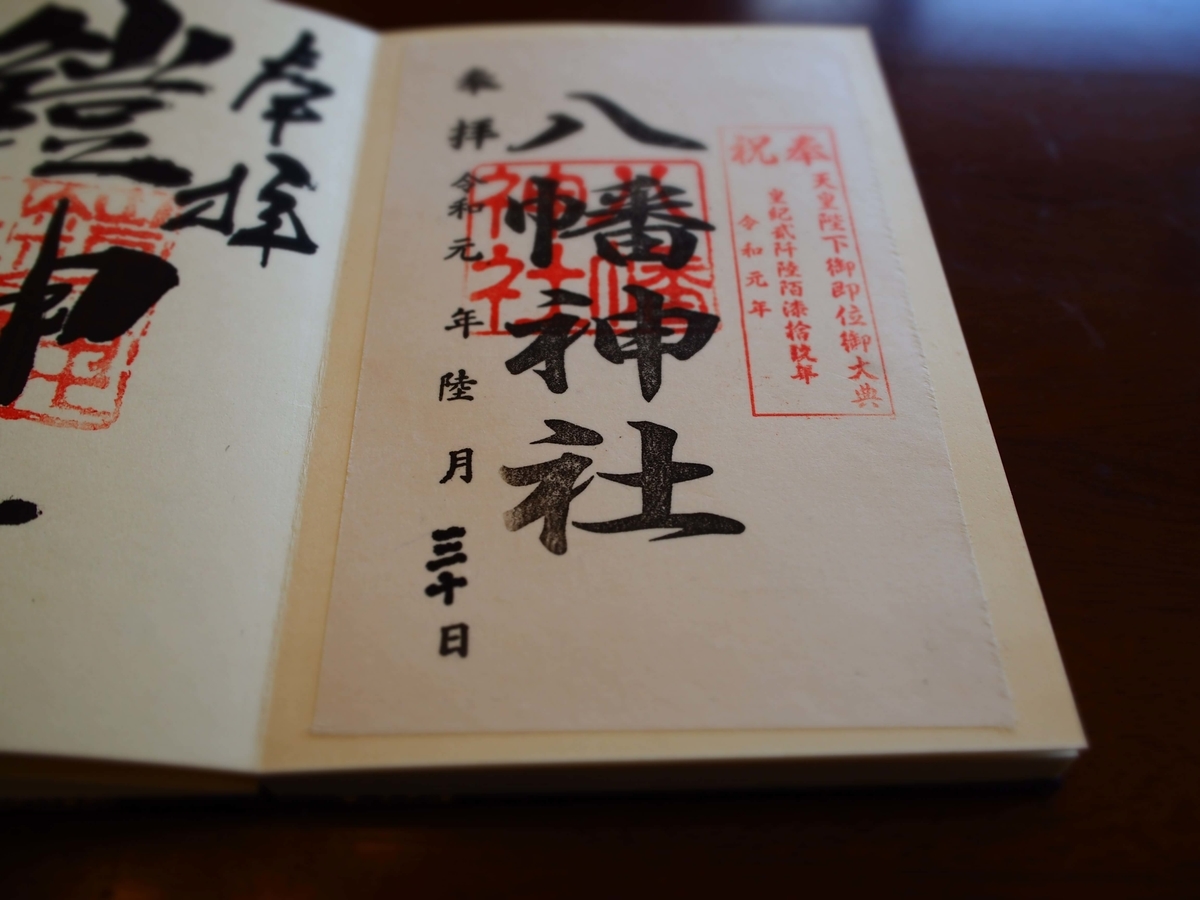 奉祝
天皇陛下御即位御大典
皇紀貳阡陸陌漆拾玖年
令和元年
八幡神社
八幡
神社
奉拝
令和元年陸月三十日
奉拝